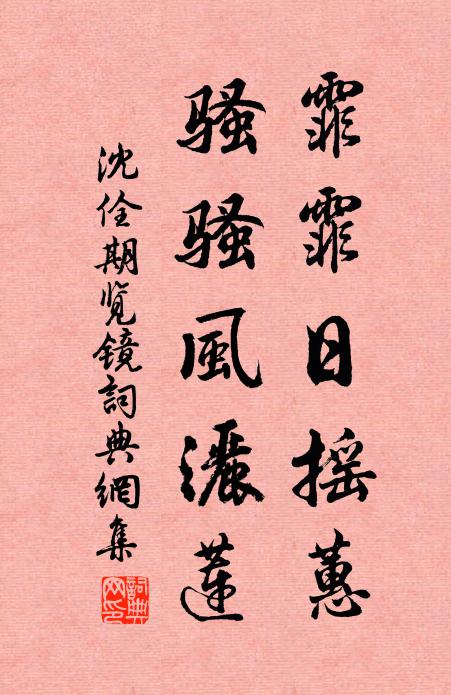 霏霏日摇蕙
骚骚風灑蓮
沈佺期览镜詞典網集
詞典網印